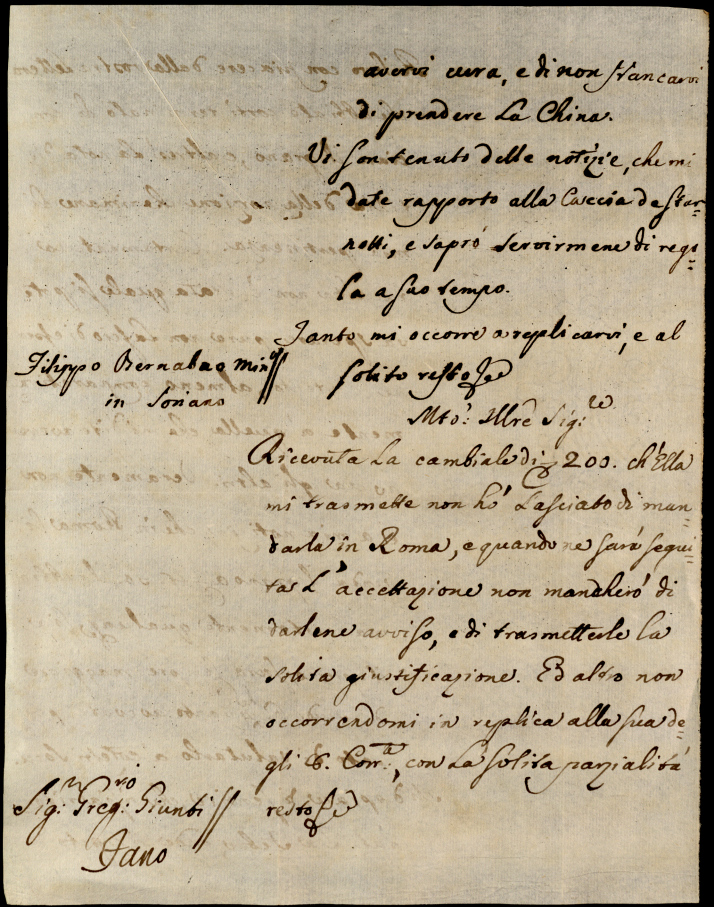 avervi cura, e di non stancarvi
di prendere La China.
Vi son tenuto delle notizie, che mi
date rapporto alla Caccia de star=
notti, e saprò servirmene di rego=
la a suo tempo.
Tanto mi occorre a replicarvi, e al
solito resto
Filippo Bernabao Min.
in Soriano
Mto: Illre Sig:re
Ricevuta La cambiale di 200. ch'Ella
mi trasmette non hò Lasciato di man=
darla in Roma, e quando ne sarà segui=
ta L'accettazione non mancherò di
darlene avviso, e di trasmetterle la
solita giustificazione. Ed altro non
occorrendomi in replica alla sua de=
gli 8. Corr:te, con La solita parzialità
resto
Sig:r Greg:ro Giunti
Fano